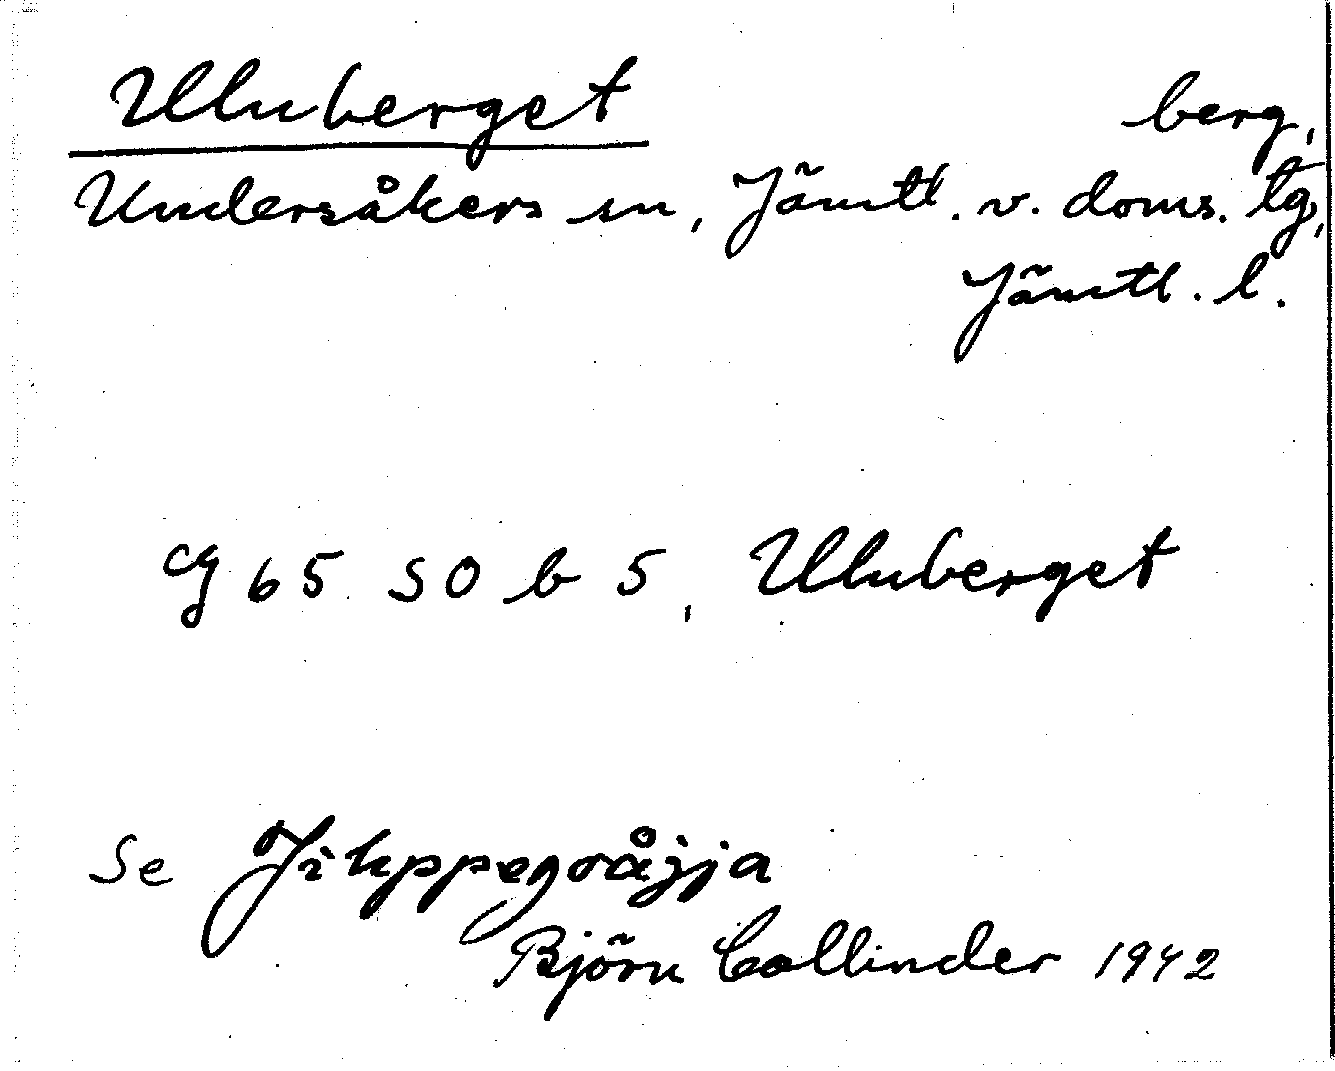 Uluberget
berg,
Undersåkers sn, Jämtl. v. doms. tg,
Jämtl. l.
Cg 65 SO b 5, Uluberget
Se
Björn Collinder 1942